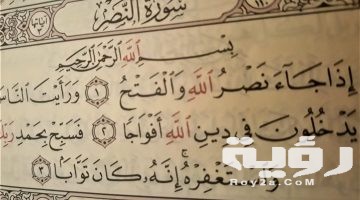 سُورَةُ النَّصْرِ
بِسْمِ اللَّهِ الرَّحْمَٰنِ الرَّحِيمِ
إِذَا جَآءَ نَصْرُ اللَّهِ وَالْفَتْحُ ١ وَرَأَيْتَ النَّاسَ
يَدْخُلُونَ فِي دِينِ اللَّهِ أَفْوَاجًا ٢ فَسَبِّحْ بِحَمْدِ رَبِّكَ
إِنَّهُ كَانَ تَوَّابًا ٣
رؤية
Roy2a.Com